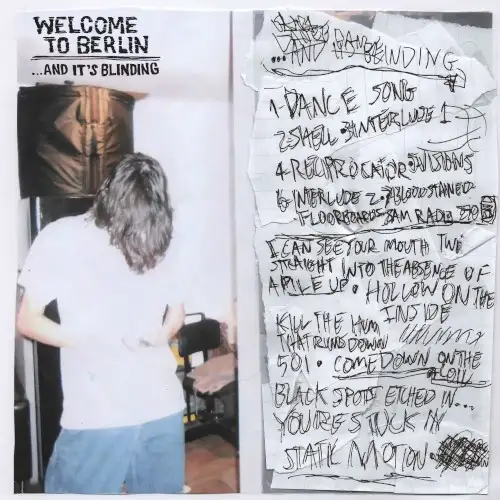 WELCOME
TO BERLIN
...AND IT'S BLINDING
...AND BLINDING
1 DANCE SONG
2 SHELL • 3 INTERLUDE 1
4 RECIPROCATOR • 5 VISIONS
6 INTERLUDE 2 • 7 BLOODSTAINED
FLOORBOARDS 8 AM RADIO
I CAN SEE YOUR MOUTH TWI
STRAIGHT INTO THE ABSENCE OF
A PILE UP • HOLLOW ON THE
INSIDE
KILL THE HUM
THAT RUNS DOWN
501 • COME DOWN ON THE
BLACK SPOTS ETCHED IN...
YOU'RE STUCK IN
STATIC MOTION